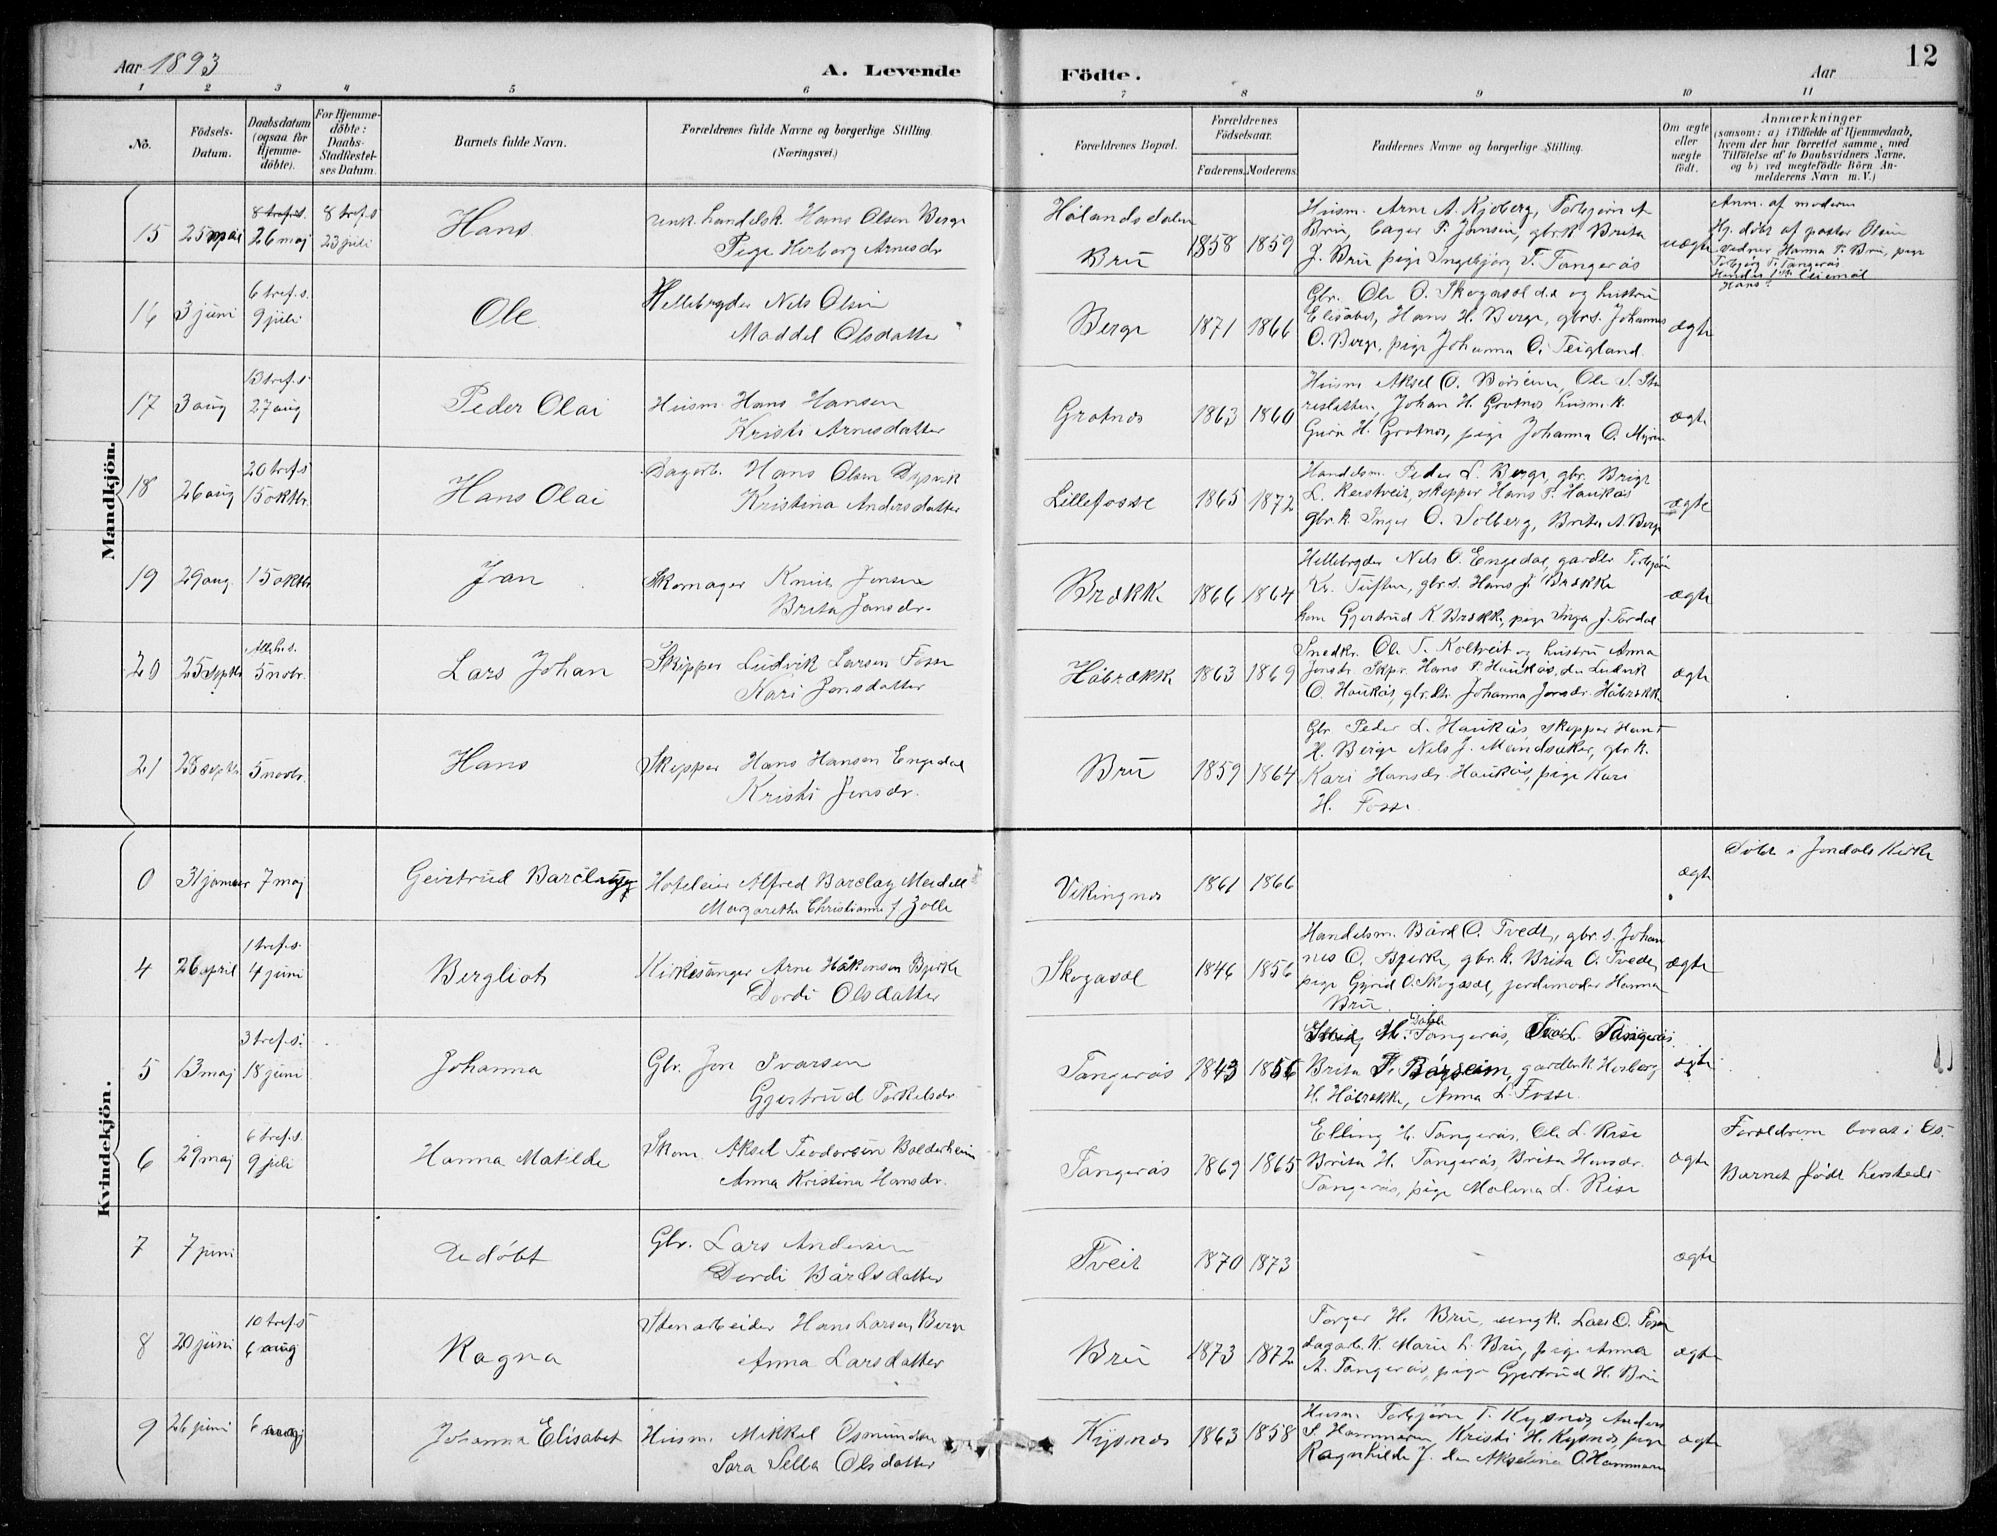 Aar 1893
A. Levende
Födte.
Aar
12
1 2 3 4 5 6 7 8 9 10 11
No.
Födsels-Datum.
Daabsdatum (ogsaa for Hjemme-döbte).
For Hjemme-döbte: Daabs-Stadfæstel-ses Datum.
Barnets fulde Navn.
Forældrenes fulde Navne og borgerlige Stilling. (Næringsvei.)
Forældrenes Bopæl.
Forældrenes Födselsaar.
Faderens. Moderens.
Faddernes Navne og borgerlige Stilling.
Om ægte eller uægte födt.
Anmærkninger
(saasom: a) i Tilfælde af Hjemmedaab,
hvem der har forrettet samme, med
Tilföielse af to Daabsvidners Navne,
og b) ved uegtefödte Börn An-
melderens Navn m. V.)
Mandkjön.
15 25 mai 8 tref.s. 26 maj 8 tref.s 23 juli Hans
Unk. Handelsk. Hans Olsen Berge
Pige Herborg Arnesdr
Hålandsdalen
Bru 1858 1859
Husm. Arne A. Kjoberg, Torbjørn A
Bru, Lager P. Jansen, gbrk Brita
J. Bru pige Ingebjørg T. Tangerås
uægte
Anm. af moderen
Hj. døbt af pastor Olsen
vidner Hanna P. Bru, pige
Torbjørg T. Tangerås
Hans?
16 3 juni 6 tref.s. 9 juli Ole
Hellebryder Nels Olsen
Maddel Olsdatter
Berge 1871 1866
Gbr. Ole O. Skogasel d.e og hustru
Elisabet, Hans H. Berge, gbr.s. Johannes
O. Berge, pige Johanna O. Teigland.
ægte
17 3 aug 13 tref.s. 27 aug Peder Olai
Husm. Hans Hansen
Kristi Arnesdatter
Grotnes 1863 1860
Husm. Aksel O. Børseim, Ole S. Stu
reslatten, Johan H. Grotnes husm.k.
Guro H. Grotnes, pige Johanna O. Myren
ægte
18 26 aug 20 tref.s 15 oktbr. Hans Olai
Dagarb. Hans Olsen Dysvik
Kristina Andersdatter
Lillefosse 1865 1872
Handelsm. Peder L. Berge, gbr. Brigt
L. Reistveit, skipper Hans P. Haukås
gbr.k. Inger O. Solberg, Brita A. Berge
ægte
19 29 aug. 15 oktbr Jan
Skomager Knut Jensen
Brita Jansdr.
Brække 1866 1864
Hellebryder Nels O. Engedal, garder Torbjørn
Kr. Tuften, gbr.s. Hans J. Brække
kone Gjertrud K. Brække, pige Inga J. Tordal
ægte
20 25 septbr Allehs. 5 nobr. Lars Johan
Skipper Ludvik Larsen Fosse
Kari Jonsdatter
Håbrække 1863 1869
Snedkr. Ole T. Koltveit og hustru Anna
Jonsdr. Skpr. Hans P. Haukås, den Ludvik
O. Haukås, gbr.dtr. Johanna Jonsdr. Håbrække
ægte
21 28 septbr 5 novbr. Hans
Skipper Hans Hansen Engedal
Kristi Jensdr.
Bru 1859 1864
Gbr. Peder L. Haukås, skipper Hans
H. Berge Nels J. Mandsaker, gbr.k.
Kari Hansdr. Haukås, pige Kari
H. Fosse.
Kvindekjön.
0 31 januar 7 maj Geirtrud Barclay
Hoteleier Alfred Barclay Meidell
Margarethe Christianne f Jolle
Vikingnes 1861 1866 ægte
Døbt i Jondals Kirke
4 26 april 1 tref.s. 4 juni Bergliot
Kirkesanger Arne Håkonsen Bjerke
Dordi Olsdatter
Skogasel 1846 1856
Handelsm. Bård O. Tvedt, gbr.s. Johan
nes O. Bjerke, gbr.k. Brita O. Tvedt,
pige Gyrid O. Skogasel, jordmoder Hanna
Bru
ægte
5 13 maj 3 tref.s. 18 juni Johanna
Gbr. Jon Ivarsen
Gjertrud Torkelsdr.
Tangerås 1843 1856
Tangerås, Tangerås.
Brita Børseim, garderk Herborg
H. Håbrække, Anna L. Fosse.
ægte
6 29 maj 6 tref.s. 9 juli Hanna Matilde
Skom. Aksel Teodorsen Bolderheim
Anna Kristina Hansdr.
Tangerås 1869 1865
Elling H. Tangerås, Ole L. Rise
Brita H. Tangerås, Brita Hansdr.
Tangerås, pige Malena L. Rise
ægte
Foreldrene bosat i Os.
Barnet født hersteds
7 7 juni Udøbt
Gbr. Lars Andersen
Dordi Bårdsdatter
Tveit 1870 1873 ægte
8 20 juni 10 tref.s 6 aug Ragna
Stenarbeider Hans Larsen Berge
Anna Larsdatter
Bru 1873 1872
Torger H. Bru, ungk. Lars O. Fosse
dagarb.k. Mari L. Bru, pige Anna
A. Tangerås, pige Gjertrud H. Bru
ægte
9 26 juni 6 aug Johanna Elisabet
Husm. Mikkel Osmundsen
Sara Sella Olsdatter
Kysnes 1863 1858
Husm. Torbjørn T. Kysnes Anders
S. Hammaren, Kristi H. Kysnes, pige
Ragnhilde J. den Akselina O. Hammaren
ægte